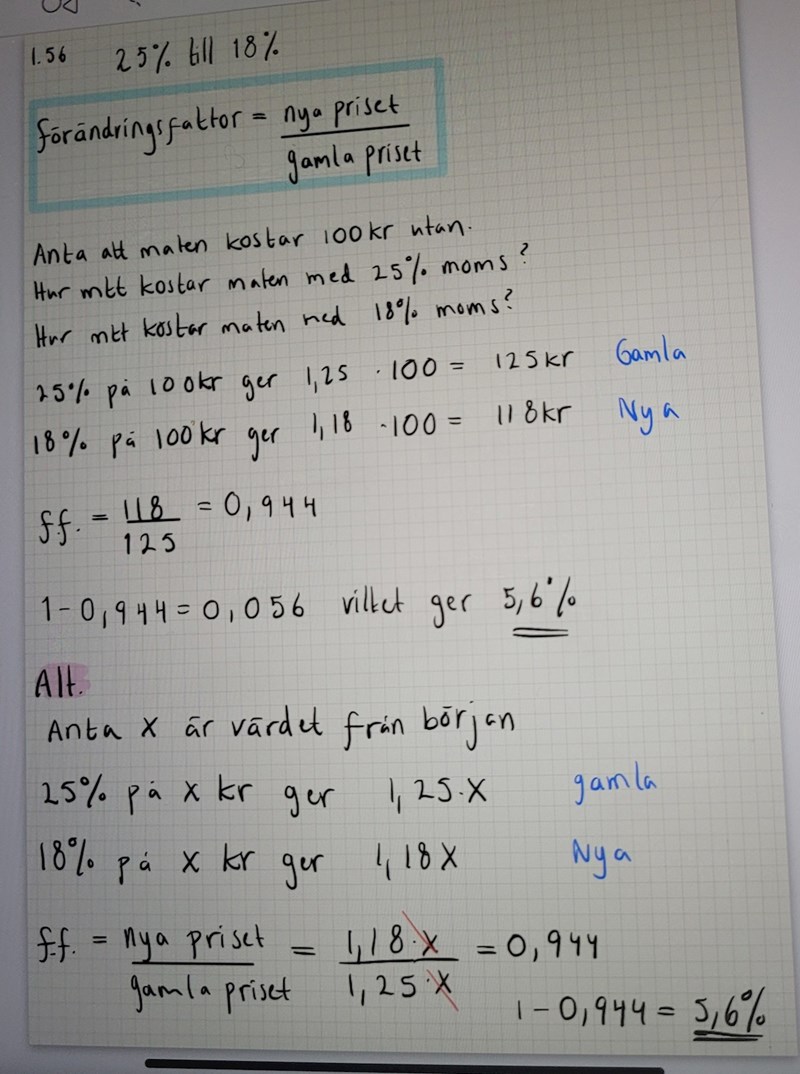 1.56 25% till 18%
förändringsfaktor = nya priset / gamla priset
Anta att maten kostar 100kr utan.
Hur mkt kostar maten med 25% moms?
Hur mkt kostar maten med 18% moms?
25% på 100kr ger 1,25 · 100 = 125kr Gamla
18% på 100kr ger 1,18 · 100 = 118kr Nya
ff. = 118 / 125 = 0,944
1 - 0,944 = 0,056 vilket ger 5,6%
Alt.
Anta X är värdet från början
25% på x kr ger 1,25·X gamla
18% på x kr ger 1,18X Nya
f.f. = nya priset / gamla priset = 1,18·X / 1,25·X = 0,944
1 - 0,944 = 5,6%